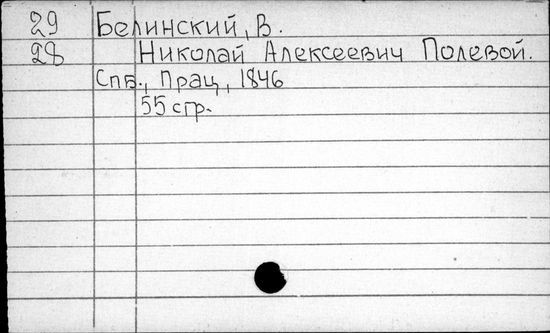 29 Белинский, В.
28 Николай Алексеевич Полевой.
Спб., Прац, 1846
55 стр.